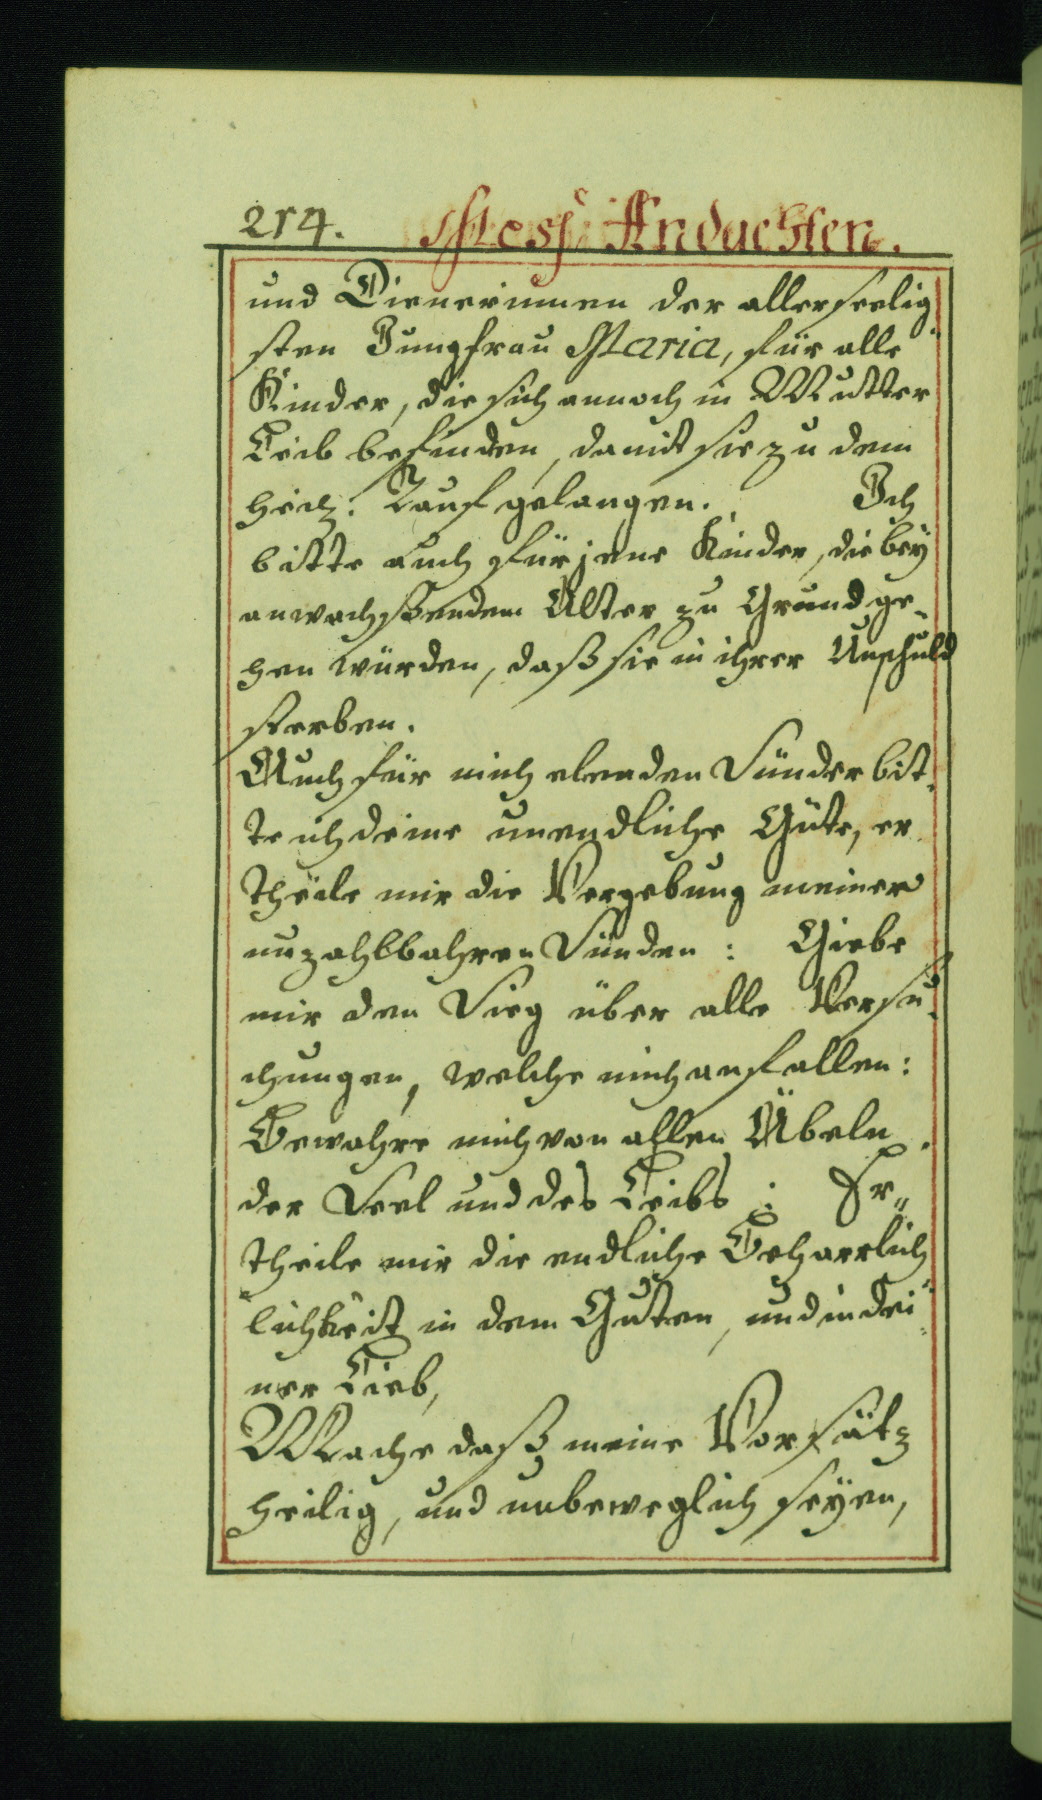 214. Mess Andachten.
und Dienerinnen der allerseelig
sten Jungfrau Maria, für alle
Kinder, die sich annoch in Mutter
Leib befinden, damit sie zu dem
heil: Tauf gelangen. Ich
bitte auch für jene Kinder, die bey
anwachssendem Alter zu Grund ge-
hen würden, daß sie in ihrer Unschuld
sterben.
Auch für mich elenden Sünder bit-
te ich deine unendliche Güte, er
theile mir die Vergebung meiner
unzahlbahren Sünden: Giebe
mir den Sieg über alle Versu-
chungen, welche mich anfallen:
Bewahre mich von allen Übeln
der Seel und des Leibs; Er-
theile mir die endliche Beharrlich
lichkeit in dem Guten, und in dei-
ner Lieb,
Mache daß meine Vorsätz
heilig, und unbeweglich seyen,